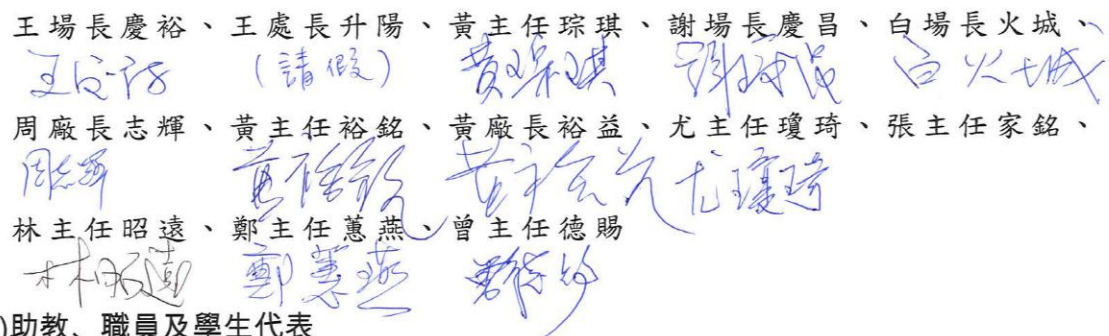 王場長慶裕、王處長升陽、黃主任琮琪、謝場長慶昌、白場長火城、
王慶裕 (請假) 黃琮琪 謝慶昌 白火城
周廠長志輝、黃主任裕銘、黃廠長裕益、尤主任瓊琦、張主任家銘、
周志輝 黃裕銘 黃裕益 尤瓊琦
林主任昭遠、鄭主任蕙燕、曾主任德賜
林昭遠 鄭蕙燕 曾德賜
)助教、職員及學生代表